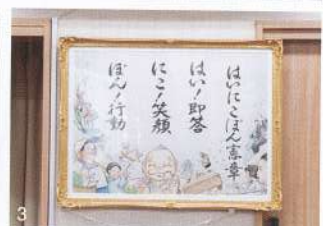 はいにこぽん憲章
はい!即答
にこ!笑顔
ぽん!行動
3